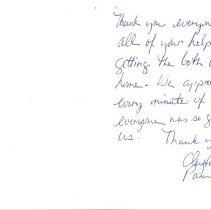 Thank you everyone
all of your help
getting the both
home. We appre
every minute of
everyone was so
us! Thank y